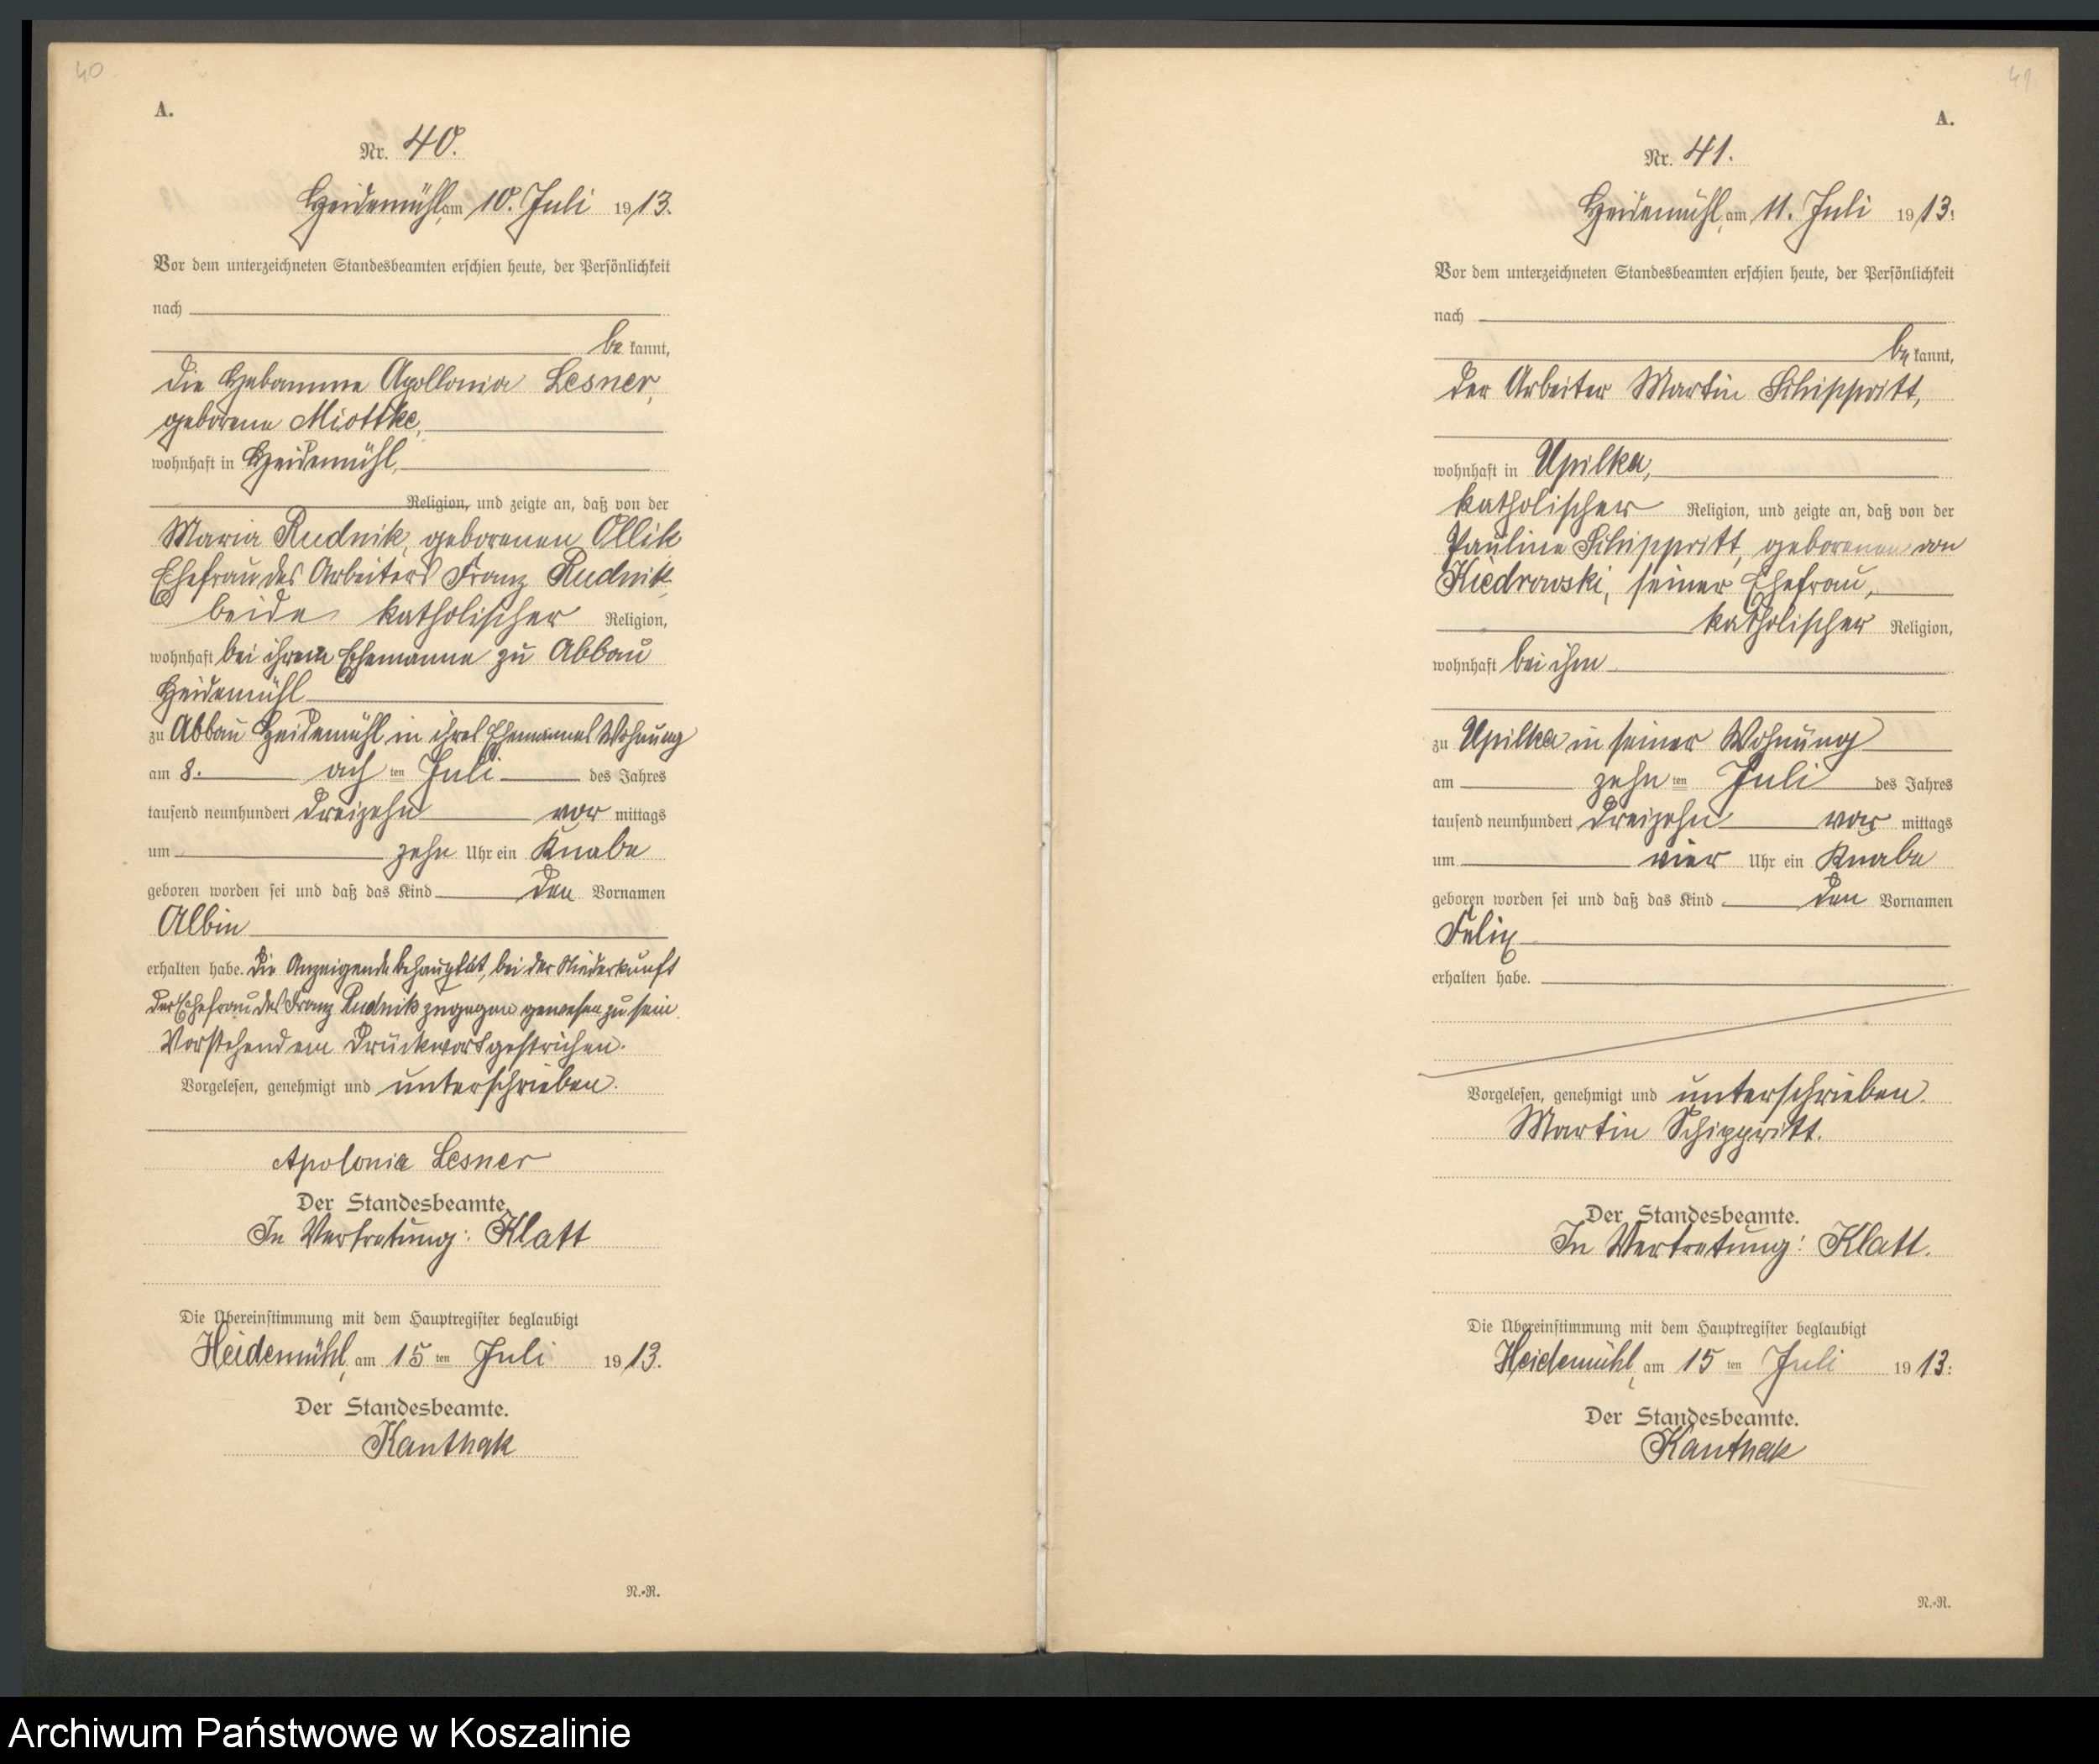 40
A.
Nr. 40.
Heidemühl, am 10. Juli 1913.
Vor dem unterzeichneten Standesbeamten erschien heute, der Persönlichkeit
nach
be kannt,
die Hebamme Apollonia Lesner,
geborene Miottke,
wohnhaft in Heidemühl,
Religion, und zeigte an, daß von der
Maria Rudnik, geborenen Ollik
Ehefrau des Arbeiters Franz Rudnik
beide katholischer Religion,
wohnhaft bei ihrem Ehemanne zu Abbau
Heidemühl
zu Abbau Heidemühl in ihres Ehemannes Wohnung
am 8. ach ten Juli des Jahres
tausend neunhundert dreizehn vor mittags
um zehn Uhr ein Knabe
geboren worden sei und daß das Kind den Vornamen
Albin
erhalten habe. Die Anzeigende behauptet, bei der Niederkunft
der Ehefrau des Franz Rudnik zugegen gewesen zu sein.
Vorstehend ein Druckwort gestrichen.
Vorgelesen, genehmigt und unterschrieben.
Apolonia Lesner
Der Standesbeamte.
In Vertretung: Klatt
Die Übereinstimmung mit dem Hauptregister beglaubigt
Heidemühl, am 15 ten Juli 1913.
Der Standesbeamte.
Kanthak
N.-R.
41
A.
Nr. 41.
Heidemühl, am 11. Juli 1913.
Vor dem unterzeichneten Standesbeamten erschien heute, der Persönlichkeit
nach
be kannt,
der Arbeiter Martin Schippritt,
wohnhaft in Upilka,
katholischer Religion, und zeigte an, daß von der
Pauline Schippritt, geborenen von
Kiedrowski, seiner Ehefrau,
katholischer Religion,
wohnhaft bei ihm
zu Upilka in seiner Wohnung
am zehn ten Juli des Jahres
tausend neunhundert dreizehn vor mittags
um vier Uhr ein Knabe
geboren worden sei und daß das Kind den Vornamen
Felix
erhalten habe.
Vorgelesen, genehmigt und unterschrieben.
Martin Schippritt.
Der Standesbeamte.
In Vertretung: Klatt.
Die Übereinstimmung mit dem Hauptregister beglaubigt
Heidemühl, am 15 ten Juli 1913.
Der Standesbeamte.
Kanthak
N.-R.
Archiwum Państwowe w Koszalinie